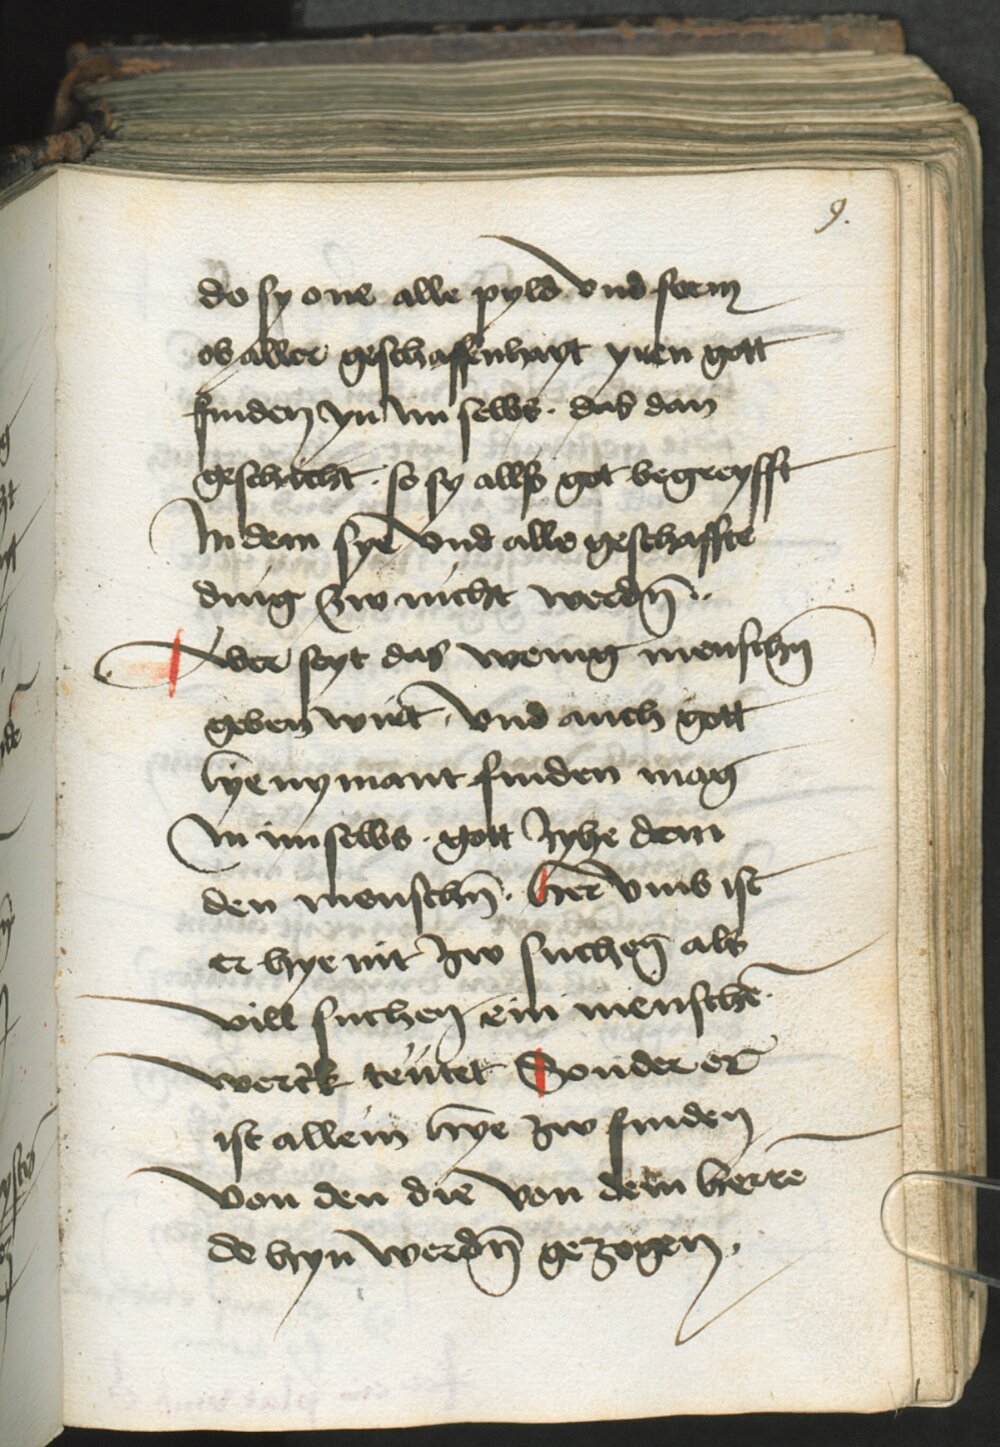 9.
do sy one alle pyld vnd form
ob aller geschaffenhayt yren gott
finden yn im selbs. das dan
geschicht. so sy alls got begreyfft
In dem sye vnd alle geschaffte
ding zw nicht werdn̄.
Aber seyt das wenig menschn̄
geben wirt. vnd auch gott
hye nymant finden mag
In im selbs. gott zyhe dem
den menschn̄. her vmb ist
er hye nit zw suchen̄ als
vill suchen̄ ein mensche.
werck teutet Sonder er
ist allein hye zw finden
von den die von dem herre
de hyn werdn̄ gezogen.